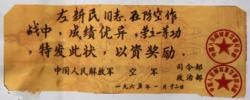 左新民同志在防空作
战中，成绩优异，荣立一等功
特发此状，以资奖励。
中国人民解放军 空军 司令部
政治部
一九六五年一月十二日